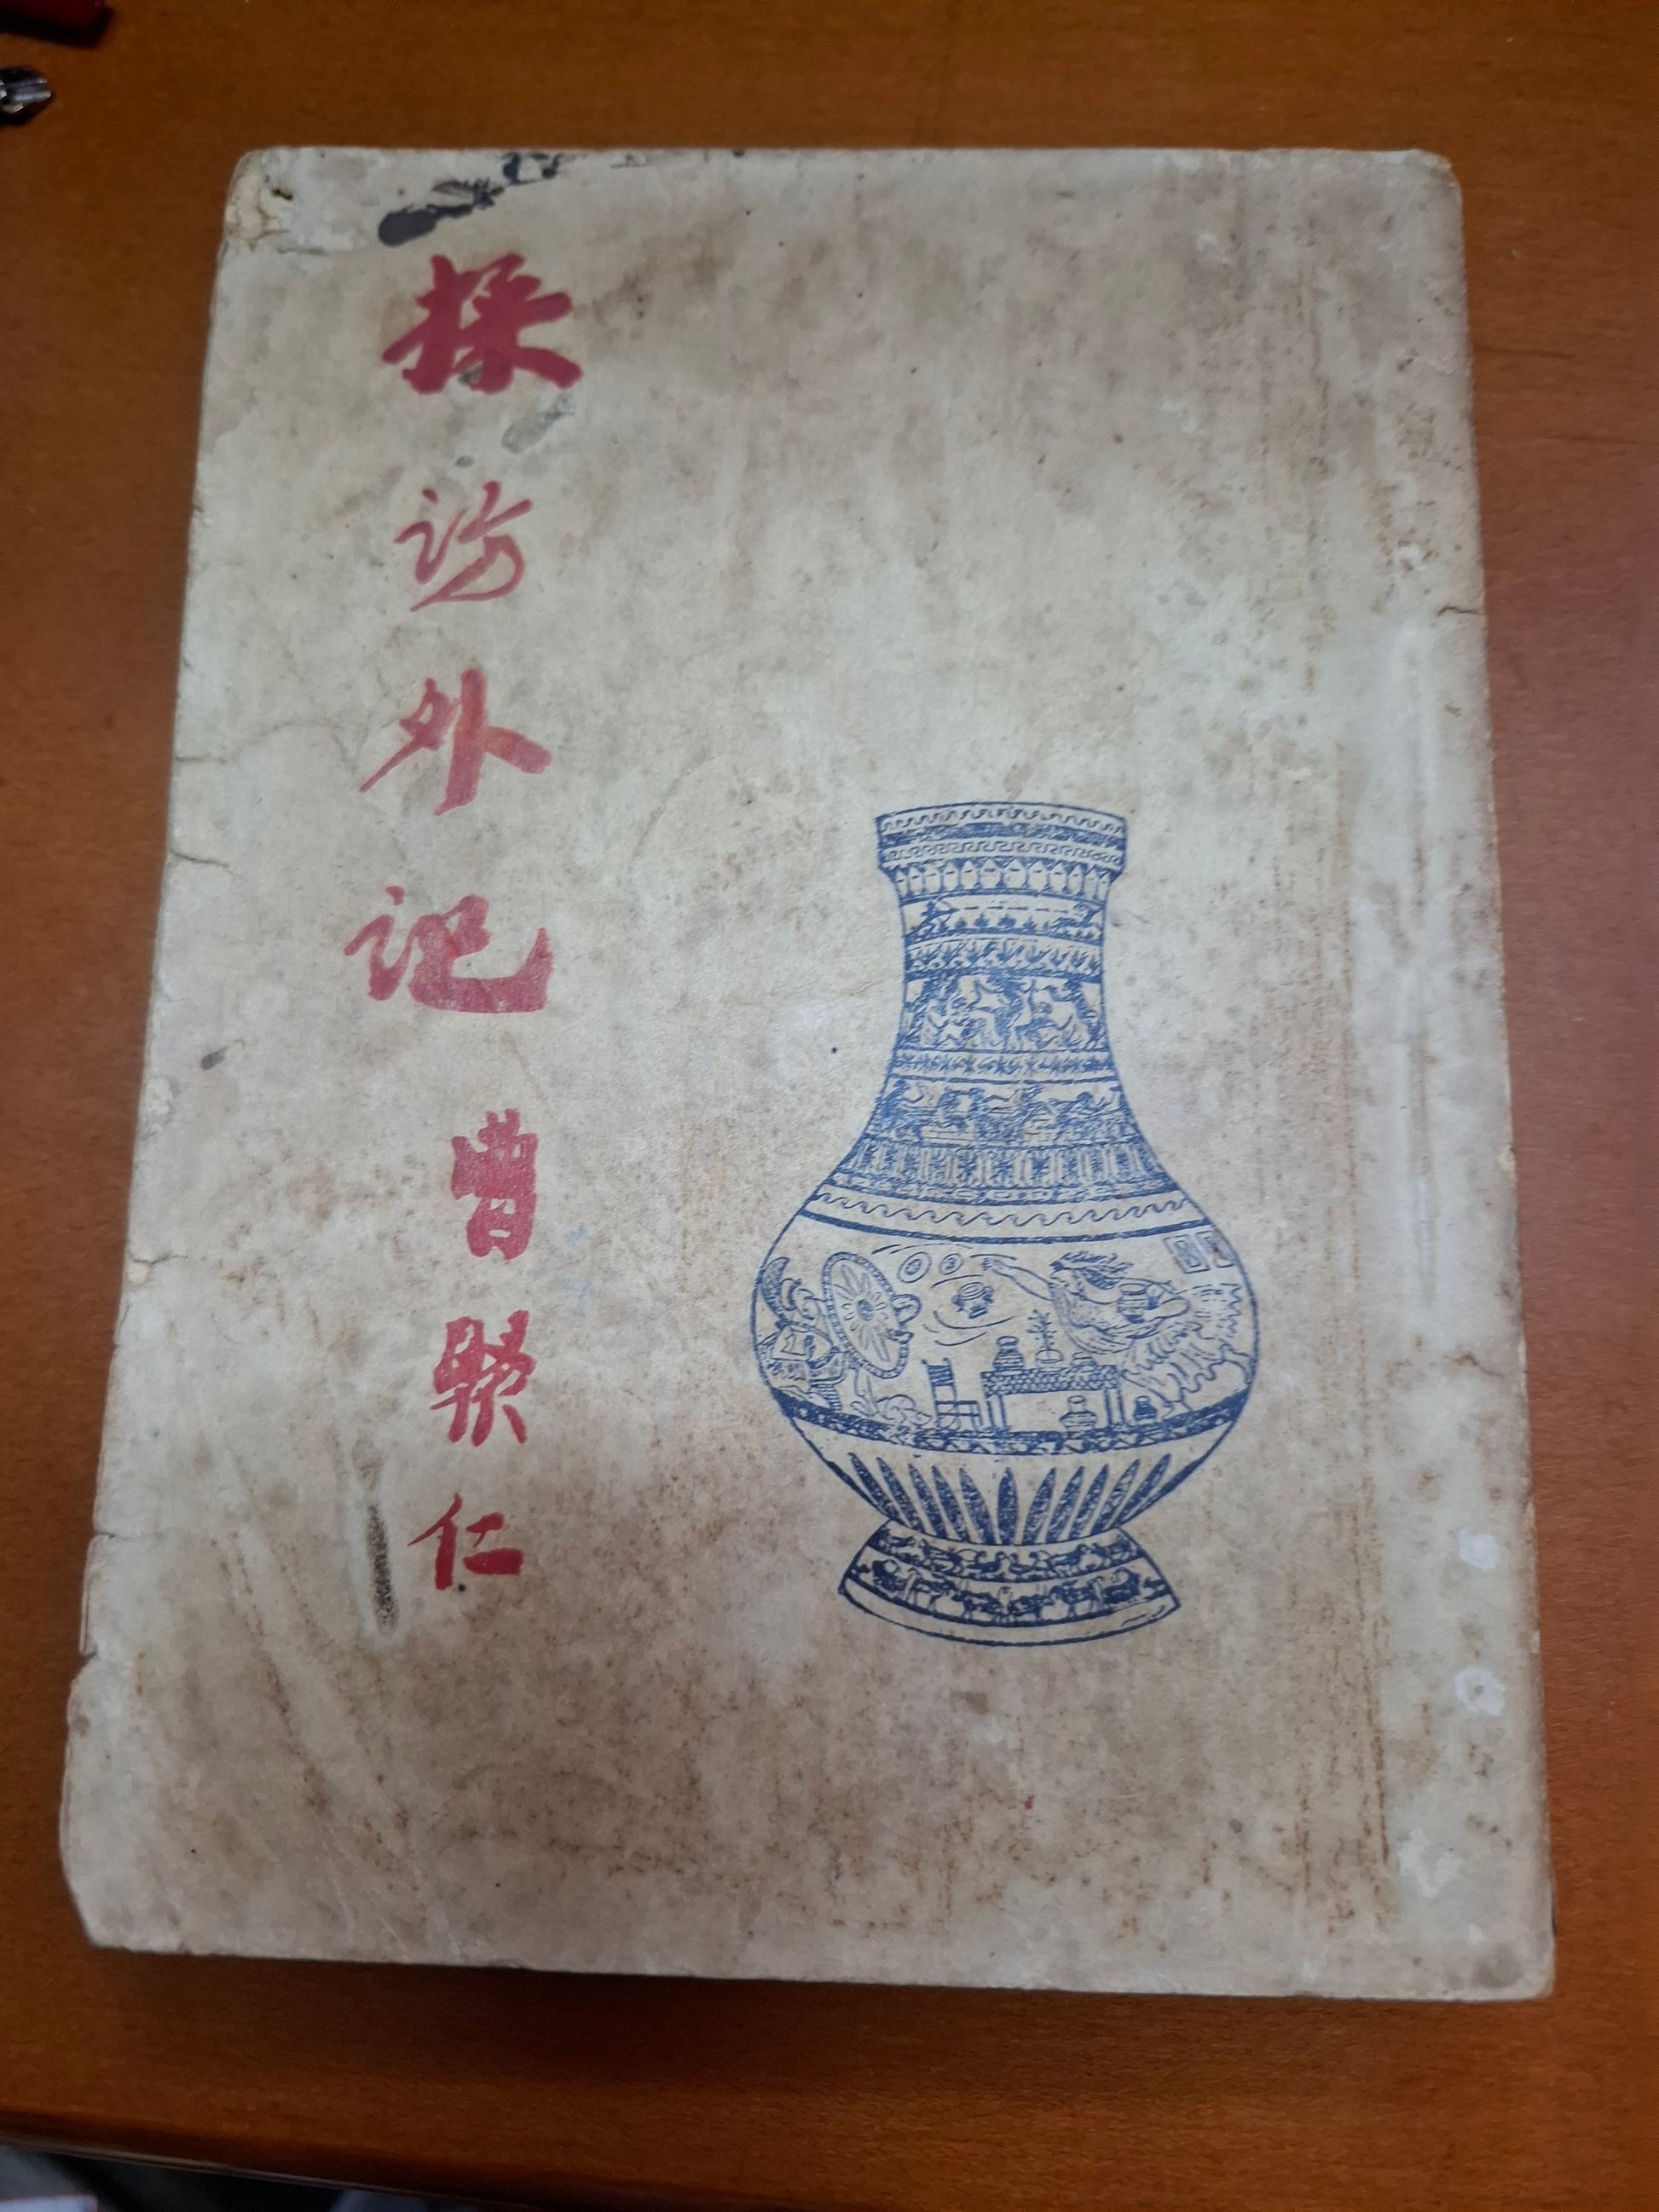 採訪外記 曹聚仁